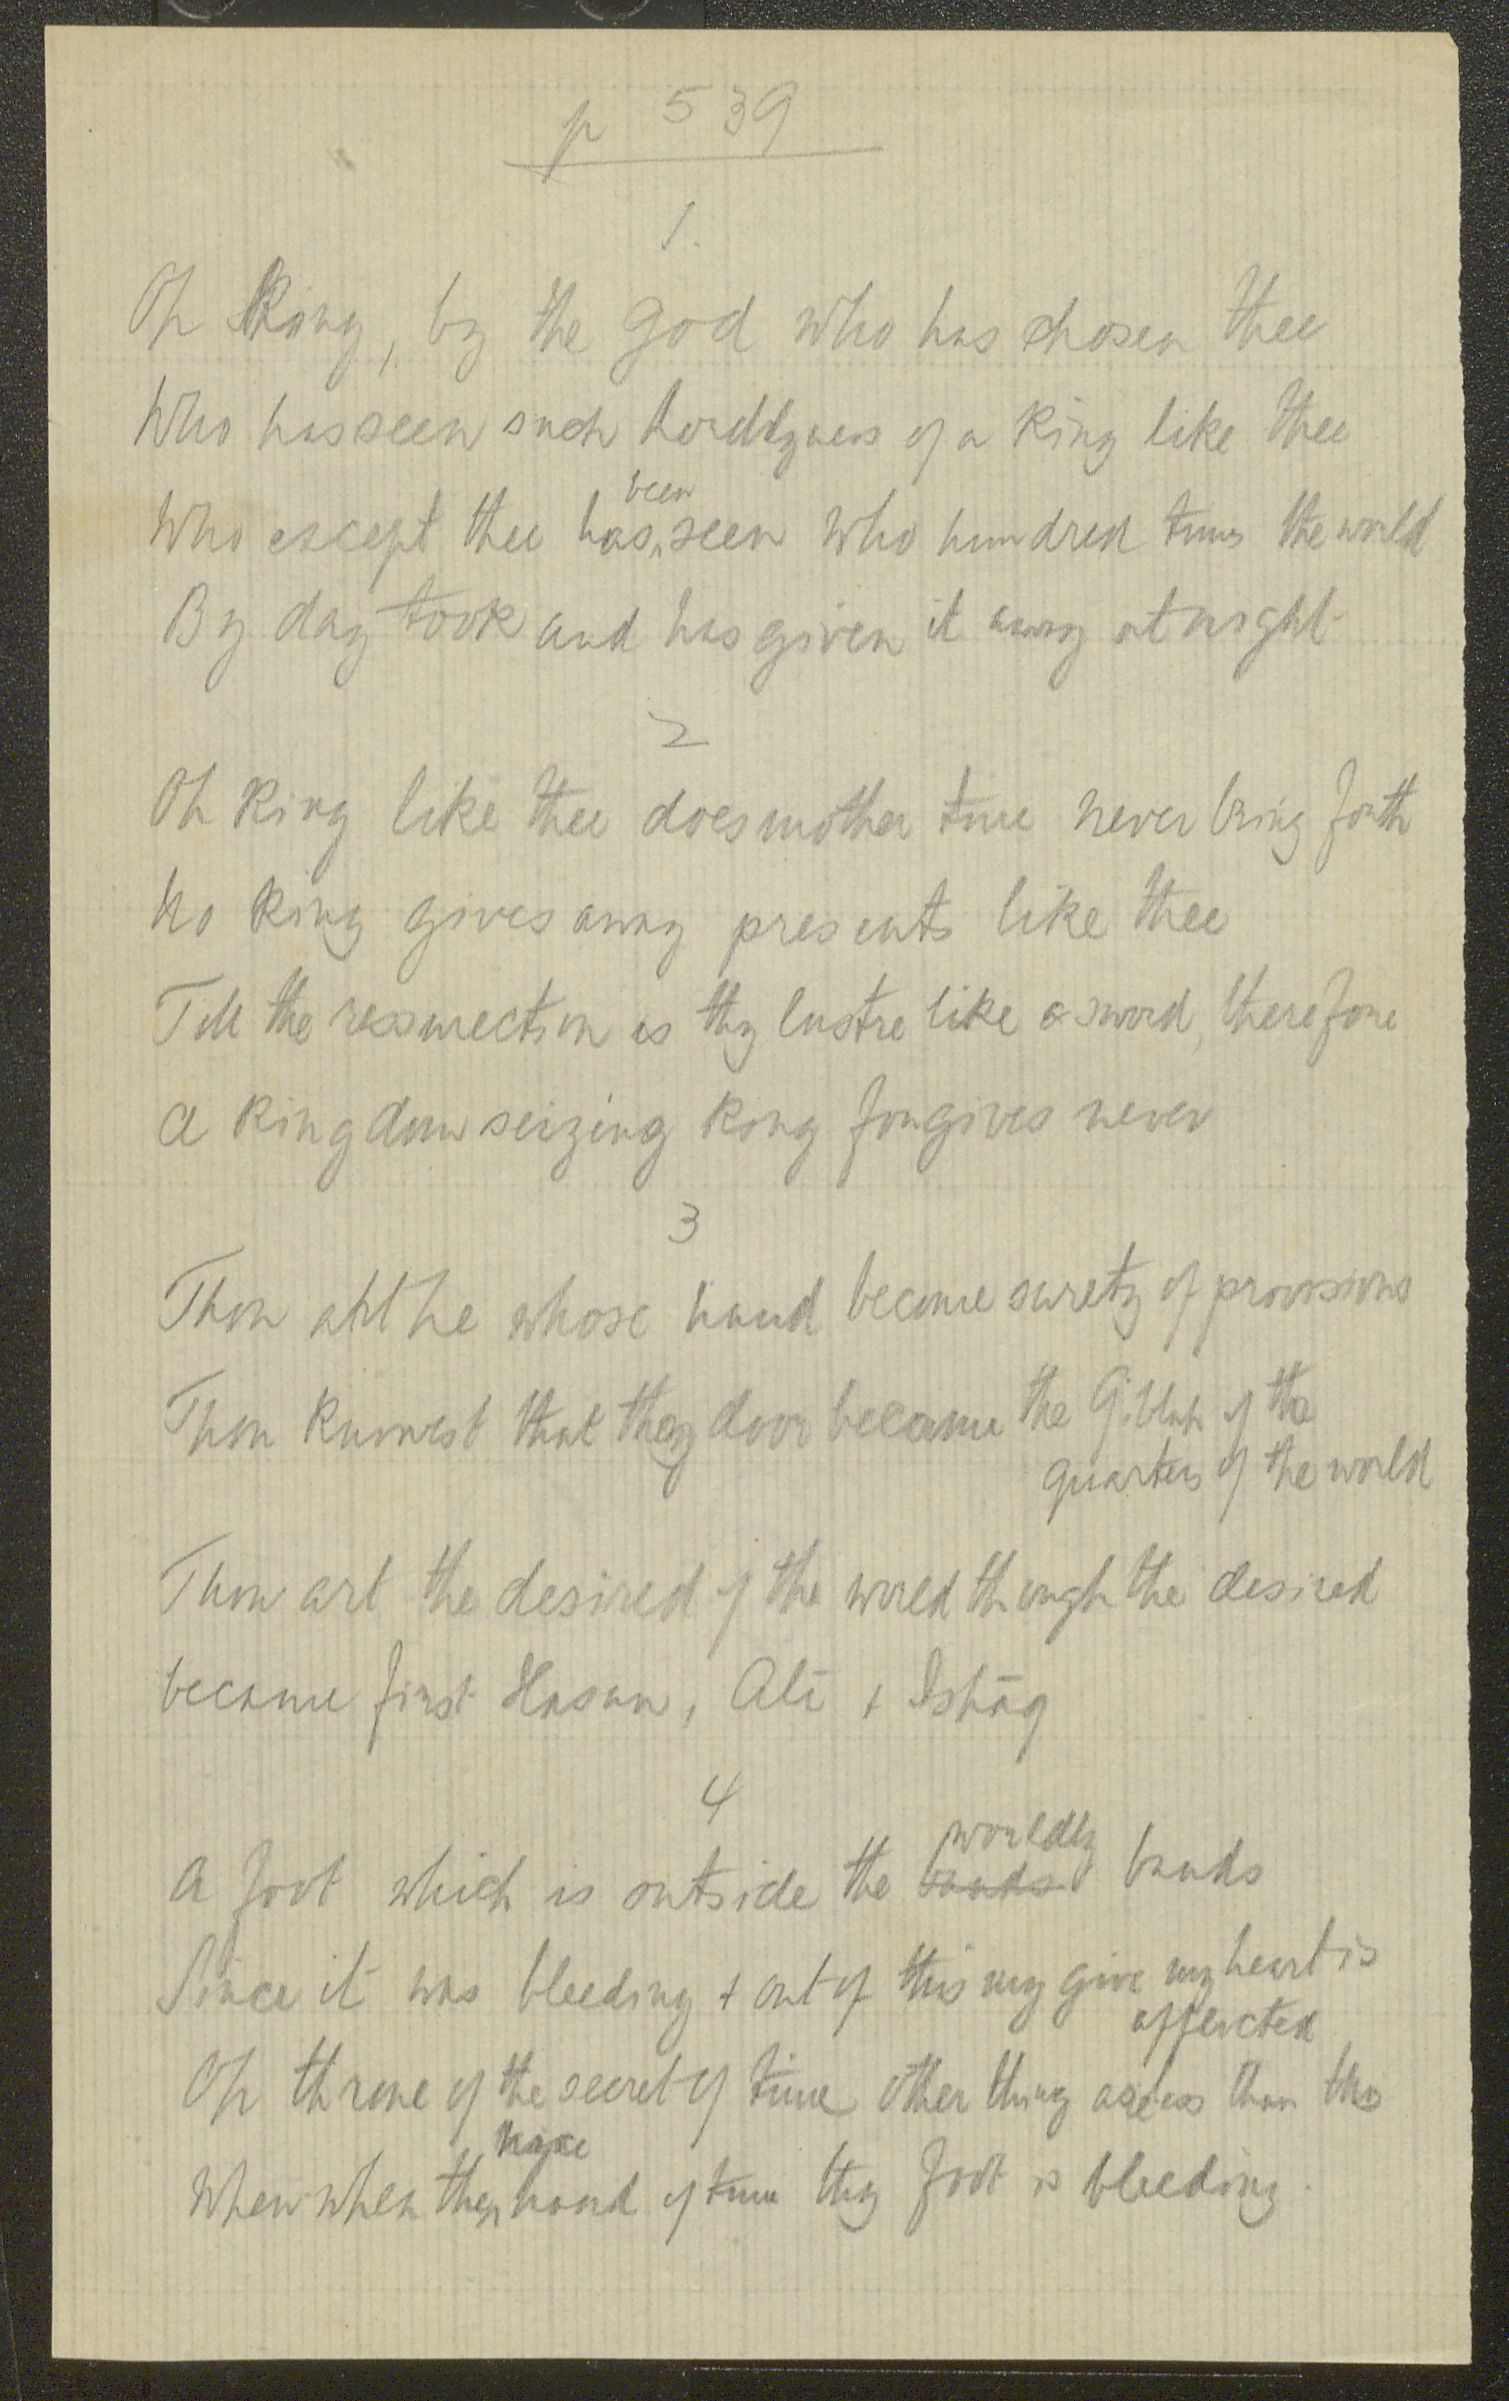 p 539
1.
Oh King, by the God who has chosen thee
Who has seen such Lordlyness of a King like thee
Who except thee has been seen who hundred times the world
By day took and has given it away at night
2
Oh King like thee does mother time never bring forth
No King gives away presents like thee
Till the ressurection is thy lustre like a sword, therefore
A Kingdom seizing King forgives never
3
Thou art he whose hand became surety of provisions
Thou knowest that they door became the Qiblah of the
quarters of the world
Thou art the desired of the world though the desired
became first Hasan, Alī + Ishāq
4
A foot which is outside the worldly bands
Since it was bleeding + out of this my heart is
afflicted
Oh throne of the secret of time other thing than this
When when the hand of time thy foot is bleeding.